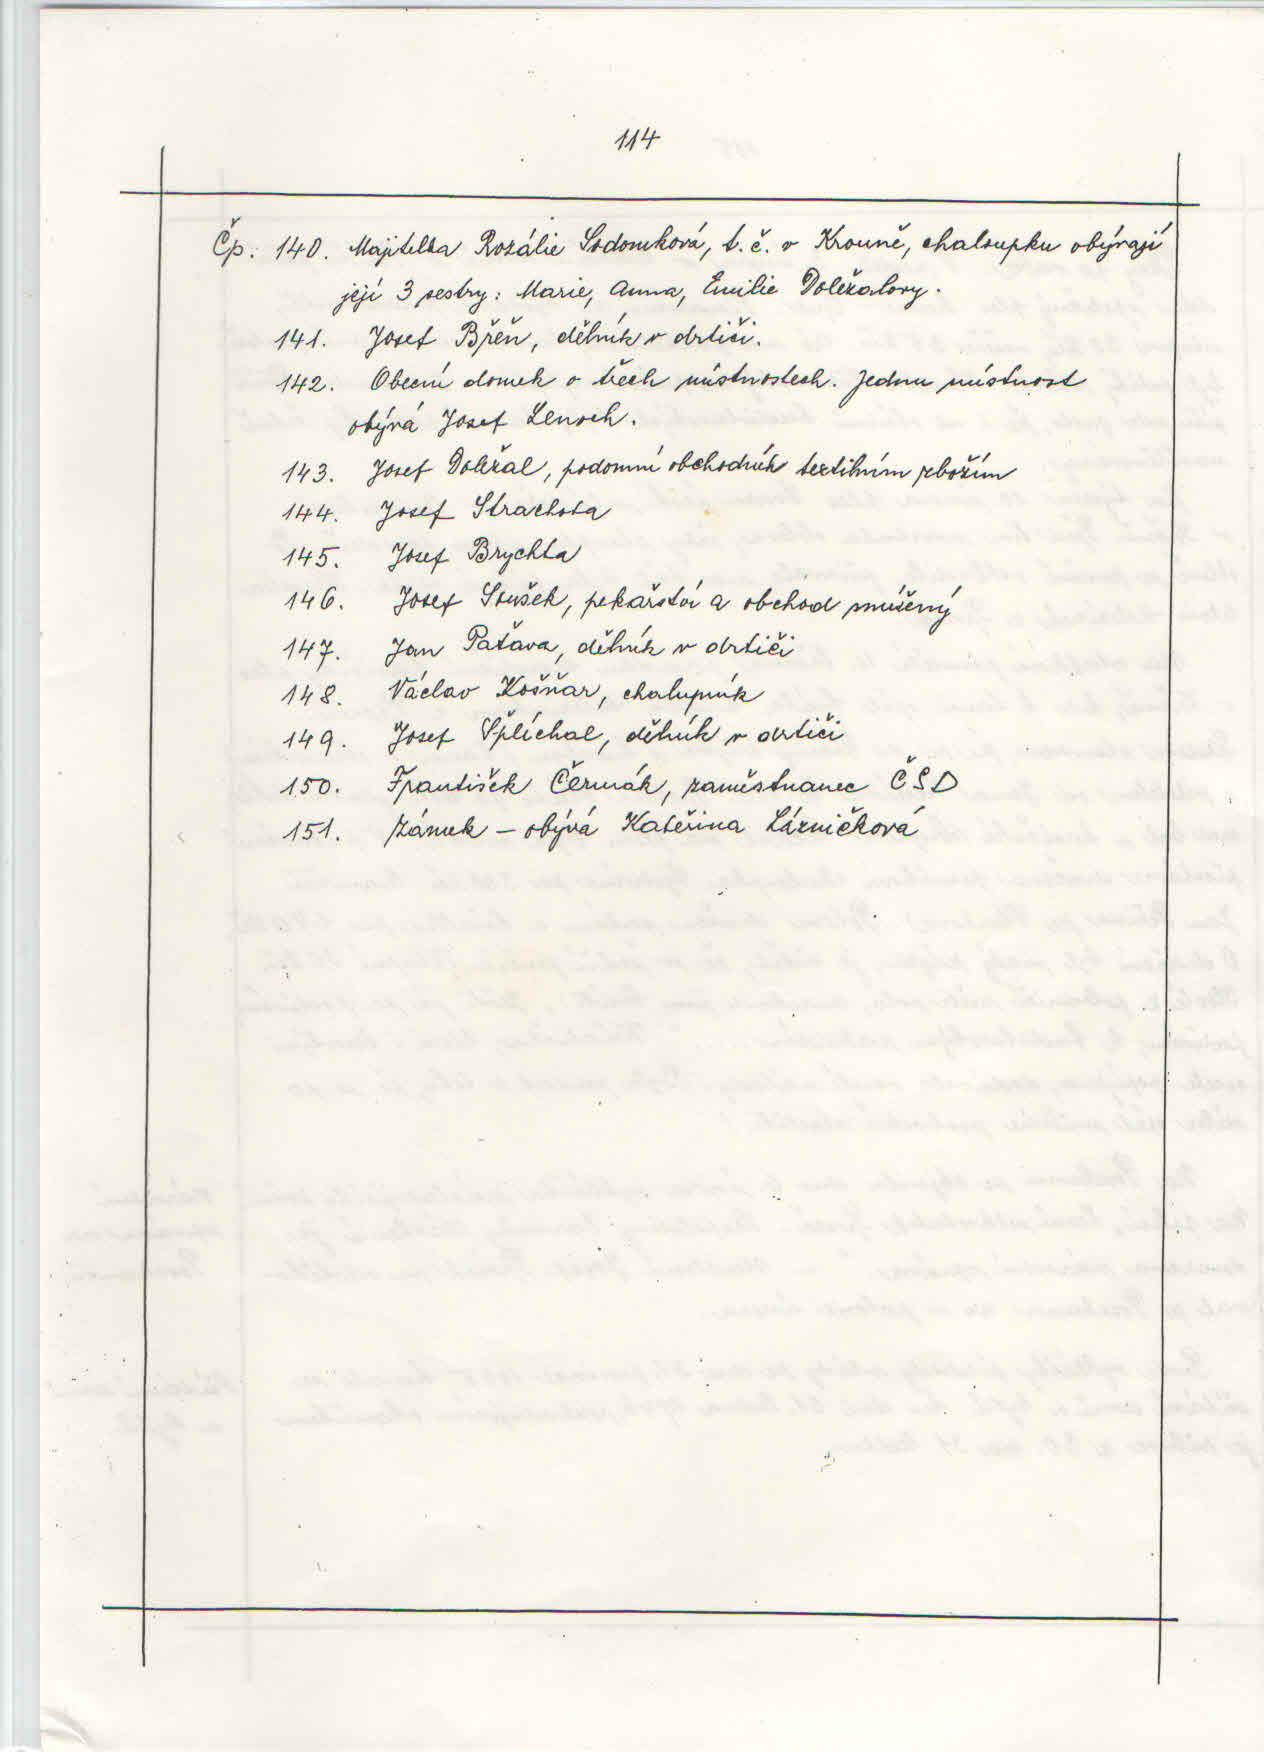 114
Čp. 140. Majitelka Rozálie Sodomková, t. č. v Krouně, chaloupku obývají
její 3 sestry: Marie, Anna, Emilie Doležalovy.
141. Josef Břěň, dělník v drtiči.
142. Obecní domek o třech místnostech. Jednu místnost
obývá Josef Lenoch.
143. Josef Doležal, podomní obchodník textilním zbožím
144. Josef Strachota
145. Josef Brychta
146. Josef Soušek, pekařství a obchod smíšený
147. Jan Paťava, dělník v drtiči
148. Václav Košňar, chalupník
149. Josef Šplíchal, dělník v drtiči
150. František Čermák, zaměstnanec ČSD
151. Zámek – obývá Kateřina Lázničková